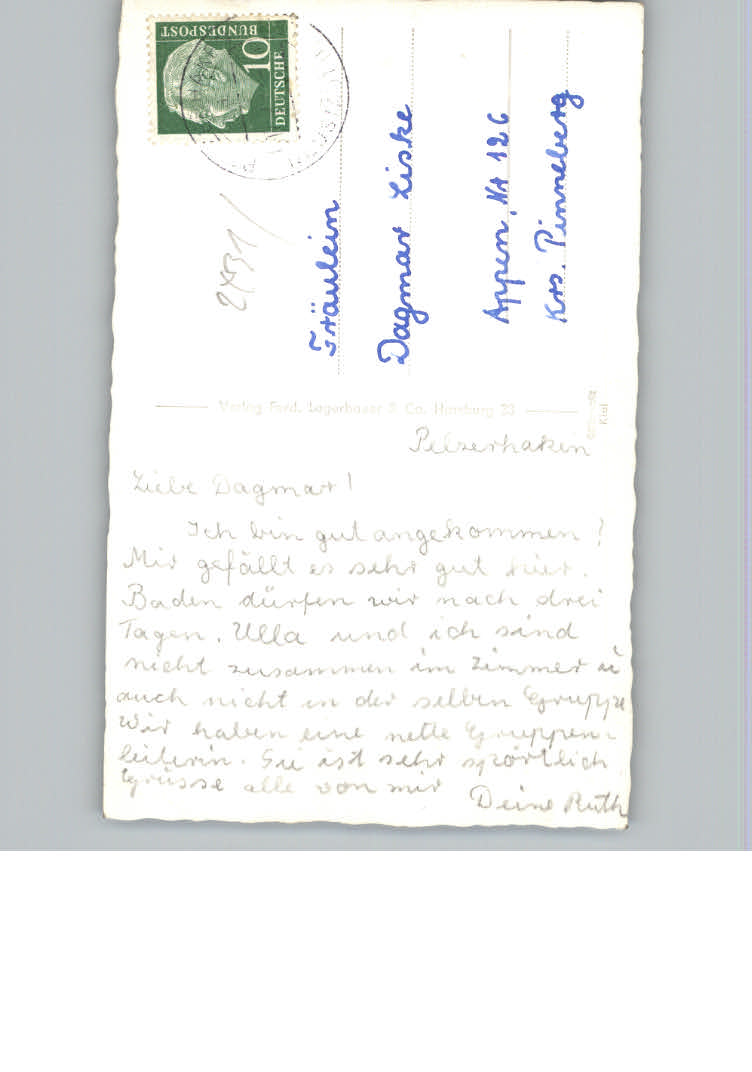 DEUTSCHE
BUNDESPOST
10
Fräulein
Dagmar Liske
Appen, Nr 126
Krs. Pinneberg
Verlag Ferd. Lagerbauer & Co. Hamburg 23
Kiel
Pelzerhaken
Liebe Dagmar!
Ich bin gut angekommen!
Mir gefällt es sehr gut hier.
Baden dürfen wir nach drei
Tagen. Ulla und ich sind
nicht zusammen im Zimmer u
auch nicht in der selben Gruppe
Wir haben eine nette Gruppen-
leiterin. Sie ist sehr sportlich
Grüsse alle von mir
Deine Ruth